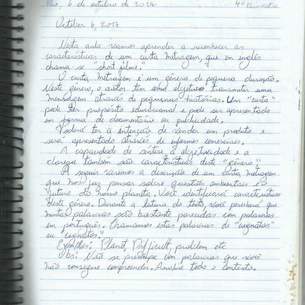 6 de outubro de 2017 4º
October 6, 2017
Nesta aula vamos aprender a reconhecer as
características de um curta metragem, que em inglês
chama se "short films".
O curta metragem é um gênero de pequena duração.
Neste gênero, o autor tem como objetivo transmitir uma
mensagem através de pequenas histórias. Um "curta"
pode ter propósito educacional e pode ser apresentado
em forma de documentário ou publicidade.
Poderá ter a intenção de vender um produto e
será apresentado através de filmes comerciais.
A capacidade de síntese, a objetividade e a
clareza também são características deste "gênero".
A seguir veremos a descrição de um curta metragem
que nos faz pensar sobre questões ambientais e o
futuro do nosso planeta,
deste gênero. Durante a leitura do texto, você perceberá que
muitas palavras são bastante parecidas com palavras
em português. Chamamos estas palavras de "cognatas"
ou "cognates".
Exemplos: Planet, Difficult, problem etc.
Obs: Não se preocupe com palavras que você
não consegue compreender. Analise todo o contexto.